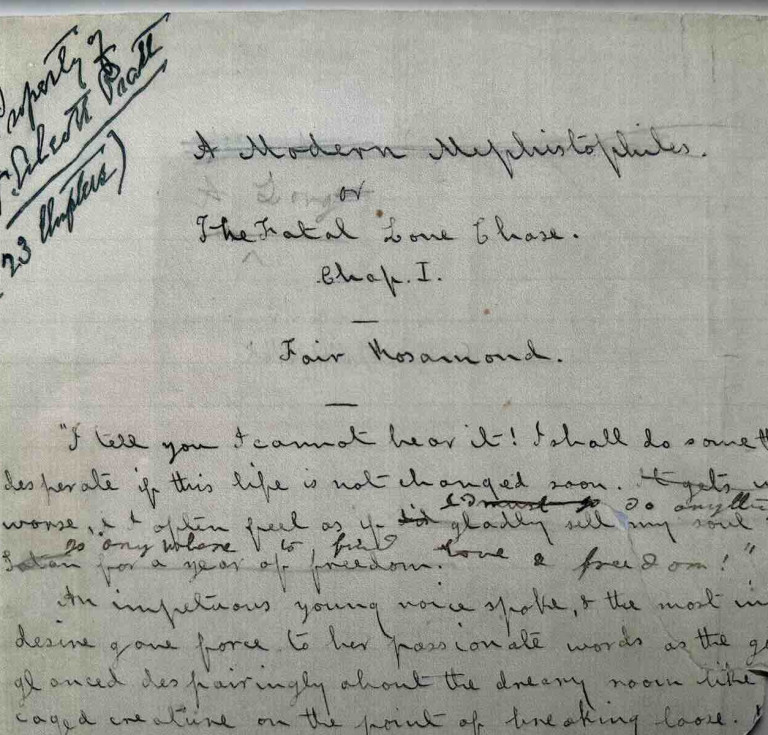 Property of
Alcott Pratt
23 Chapters)
A Modern Mephistophiles.
or
The Fatal Love Chase.
Chap. I.
Fair Rosamond.
"I tell you I cannot bear it! I shall do someth
desperate if this life is not changed soon. It gets w
I must go do anythi
worse, & I often feel as if I'd gladly sell my soul
go any where to find love & freedom!"
Satan for a year of freedom.
An impetuous young voice spoke, & the most in
desire gave force to her passionate words as the g
glanced despairingly about the dreary room like
caged creature on the point of breaking loose.